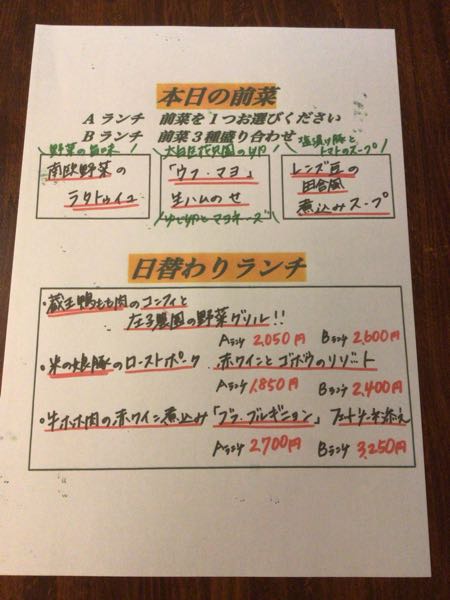 本日の前菜
Aランチ 前菜を1つお選びください
Bランチ 前菜3種盛り合わせ
野菜の旨味
南欧野菜の
ラタトゥイユ
「ウフ・マヨ」
生ハムのせ
ゆで卵とマヨネーズ
塩漬け豚と
トマトのスープ
レンズ豆の
田舎風
煮込みスープ
日替わりランチ
・蔵王鴨もも肉のコンフィと
庄子農園の野菜グリル!!
Aランチ 2,050円 Bランチ 2,600円
・米の娘豚のローストポーク 赤ワインとゴボウのリゾット
Aランチ 1,850円 Bランチ 2,400円
・牛ホホ肉の赤ワイン煮込み「ブフ・ブルギニョン」
Aランチ 2,700円 Bランチ 3,250円